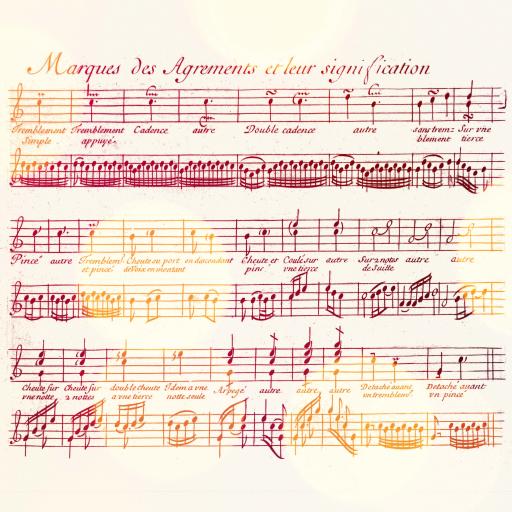 Marques des Agrements et leur signification
Tremblement Tremblement Cadence autre Double cadence autre sans trem= Sur vne
Simple appuyé blement tierce
Pincé autre Tremblemt Cheute ou port en descendant Cheute et Coulé sur autre Sur 2 notes autre autre
et pincé de Voix en montant pinc. vne tierce de Suitte
Cheute sur Cheute sur double cheute Idem a vne Arpegé autre autre autre Detaché avant Detaché avant
vne notte 2 nottes a vne tierce notte seule un tremblemt. vn pincé